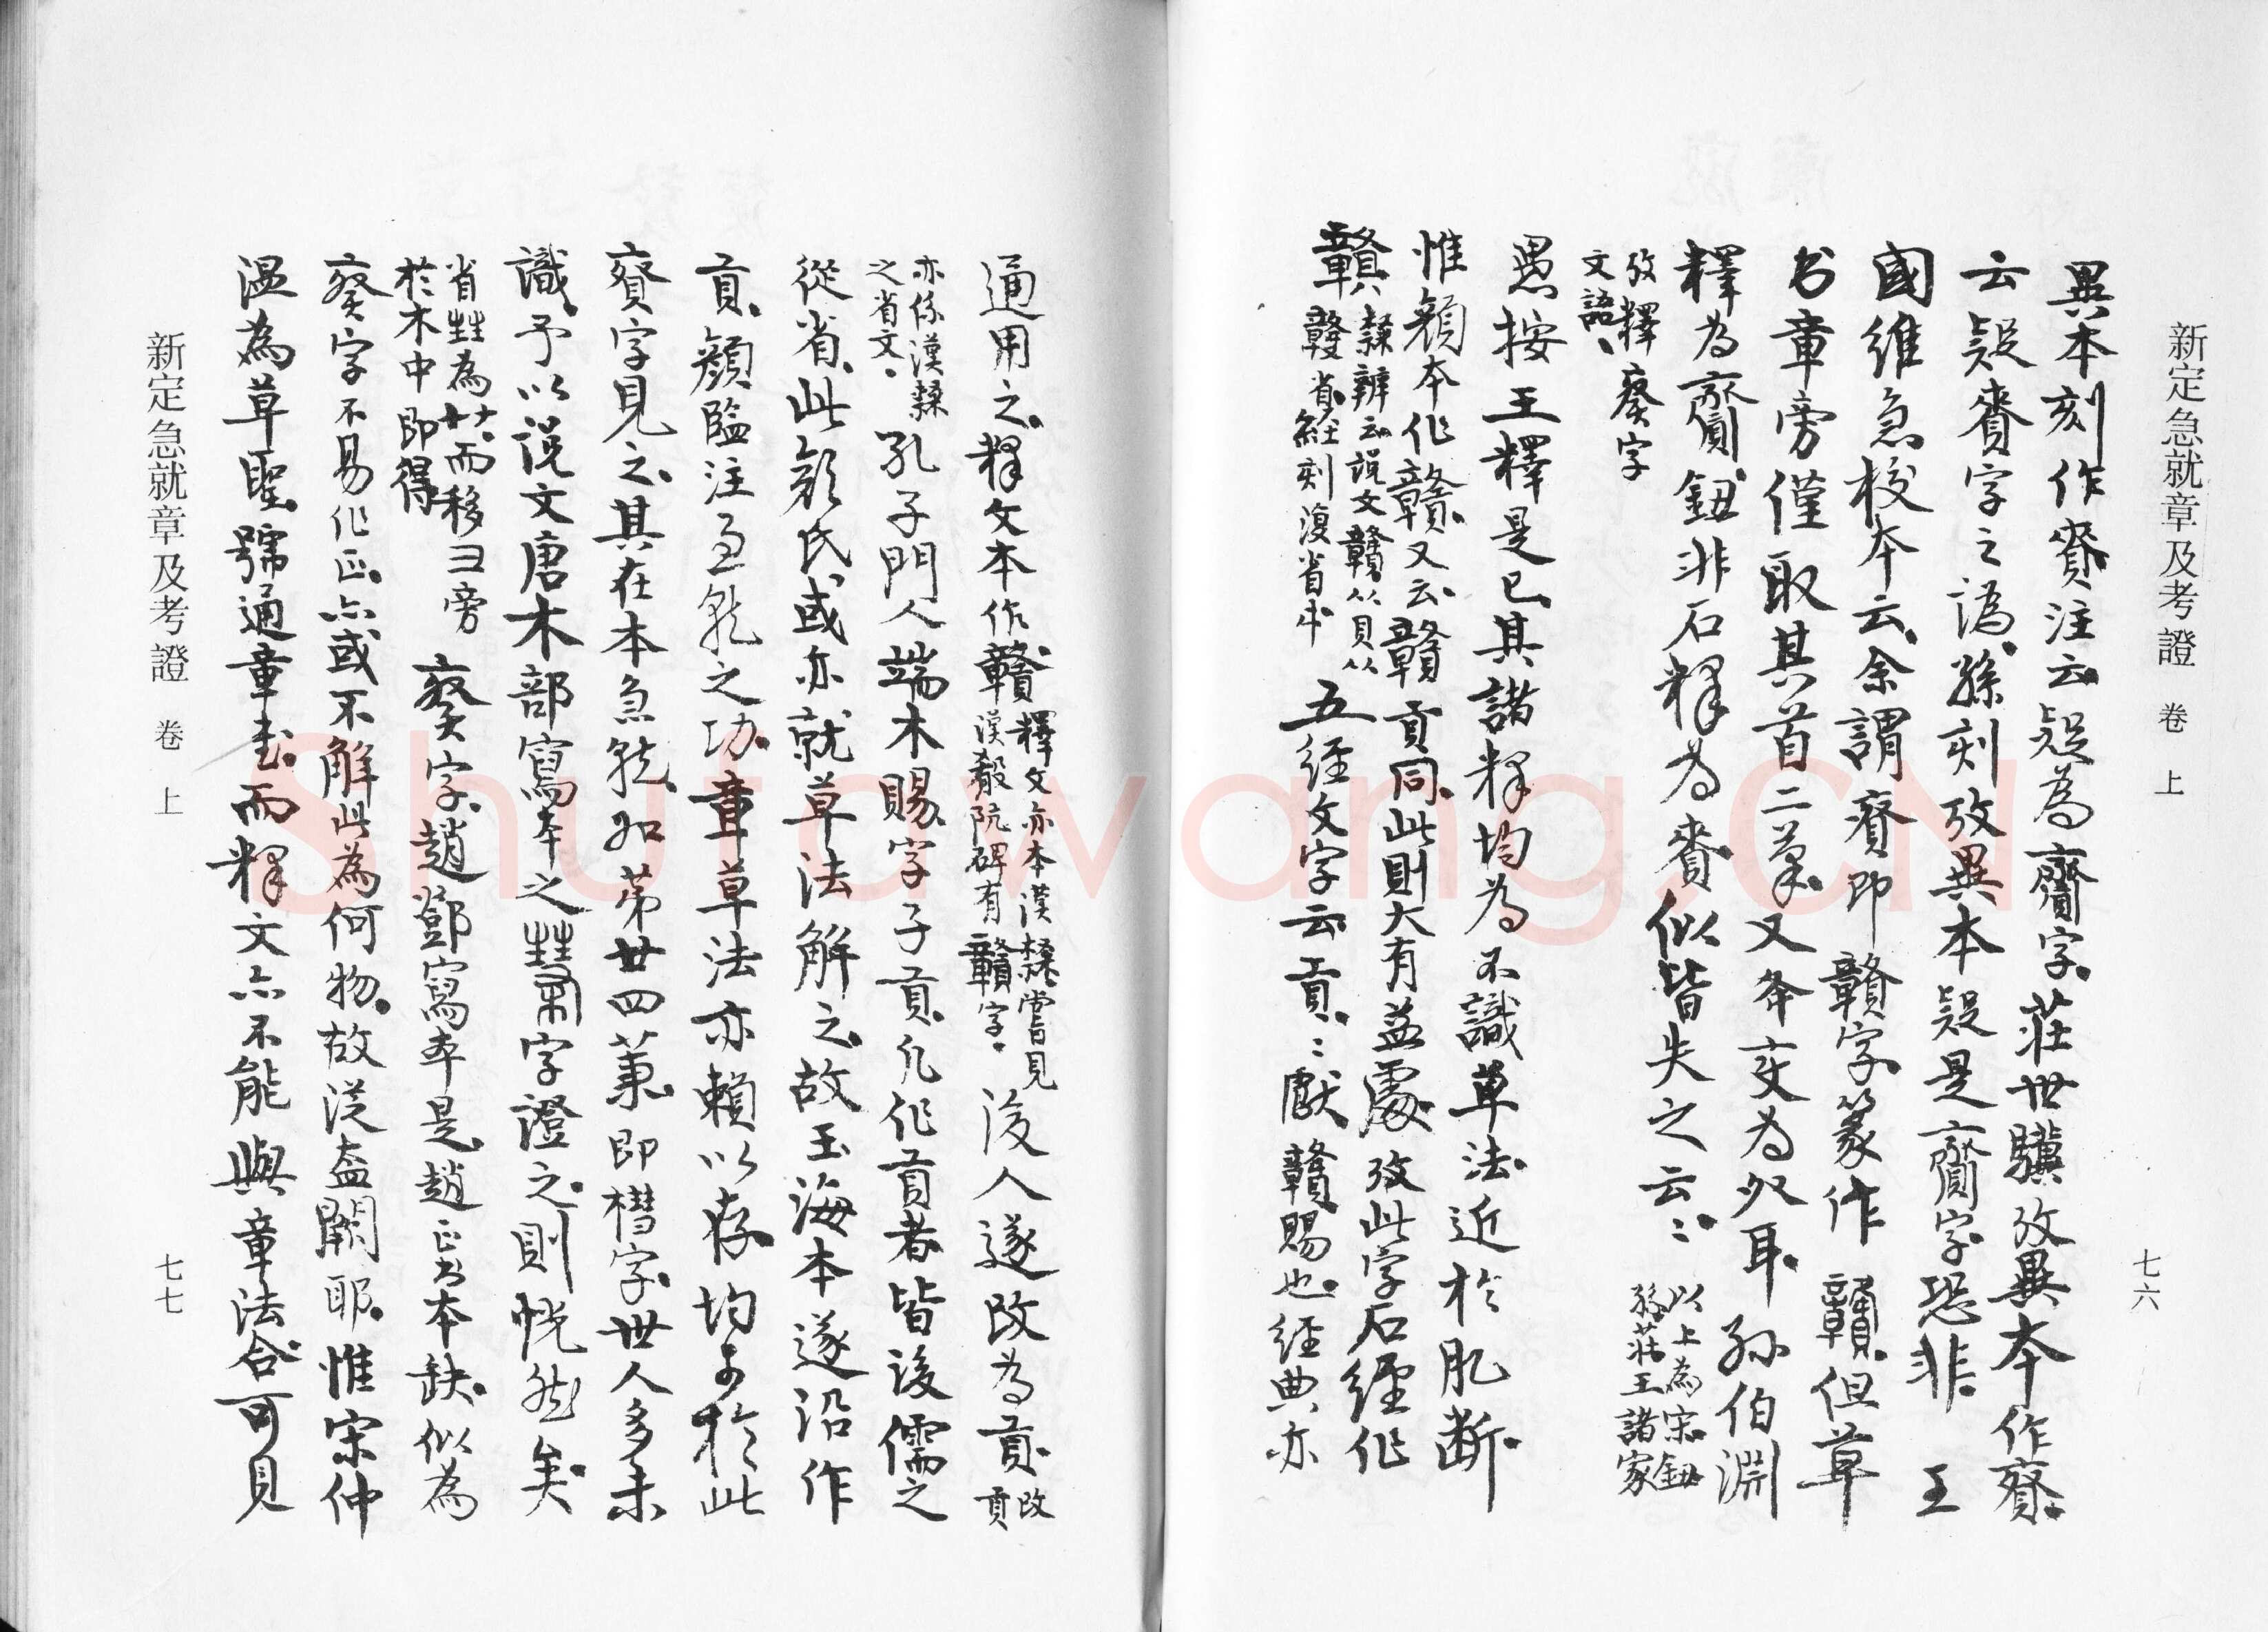 新定急就章及考證 卷上
七六
異本刻作賚注云疑為齎字莊世驥攷異本作賚
云疑賚字之譌孫刻攷異本疑是齎字恐非 王
國維急校本云余謂賚即贛字篆作贛但草
书章旁僅取其首二筆又夅变为夊耳 孙伯渊
釋为齎鈕非石释为賚似皆失之云〻 以上為宋鈕
孫莊王諸家
攷釋字
文語
愚按王釋是已其諸释均为不識草法近於肊断
惟顏本作贛又云贛貢同此則大有益處攷此字石經作
贛隸辨云說文贛从貝从
省經刻復省
五經文字云貢〻獻贛賜也經典亦
通用之释文本作贛 釋文亦本漢隸嘗見
漢殽阬碑有贛字
後人遂改为貢 改
貢
亦係漢隸
之省文
孔子門人端木賜字子貢凡作貢者皆後儒之
從省此顏氏或亦就草法解之故玉海本遂沿作
貢顏監注急就之功章草法亦賴以存均于於此
賚字見之其在本急就如第廿四葉即字世人多未
識予以说文唐木部寫本之字證之則恍然矣
省為廿而移彐旁
於木中即得
字趙鄧寫本是趙正书本缺似為
字不易作正亦或不解此為何物故從盍闕耶惟宋仲
溫為草聖號通章书而释文亦不能與章法合可見
新定急就章及考證 卷上
七七
Shufawang.CN